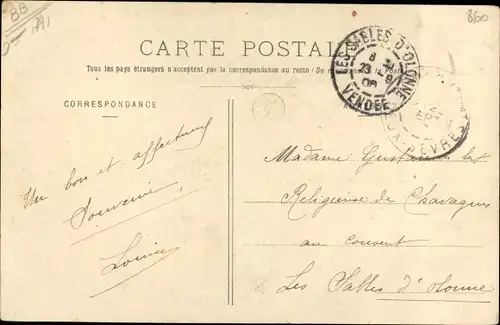 BB
1791
860
CARTE POSTALE
Tous les pays étrangers n'acceptent pas la correspondance au recto (Se
LES SABLES D'OLONNE
VENDEE
SEVRES
CORRESPONDANCE
Un bon et affectueux
Souvenir
Louise
Madame
Religieuse de Chavagnes
au couvent
Les Sables d'Olonne